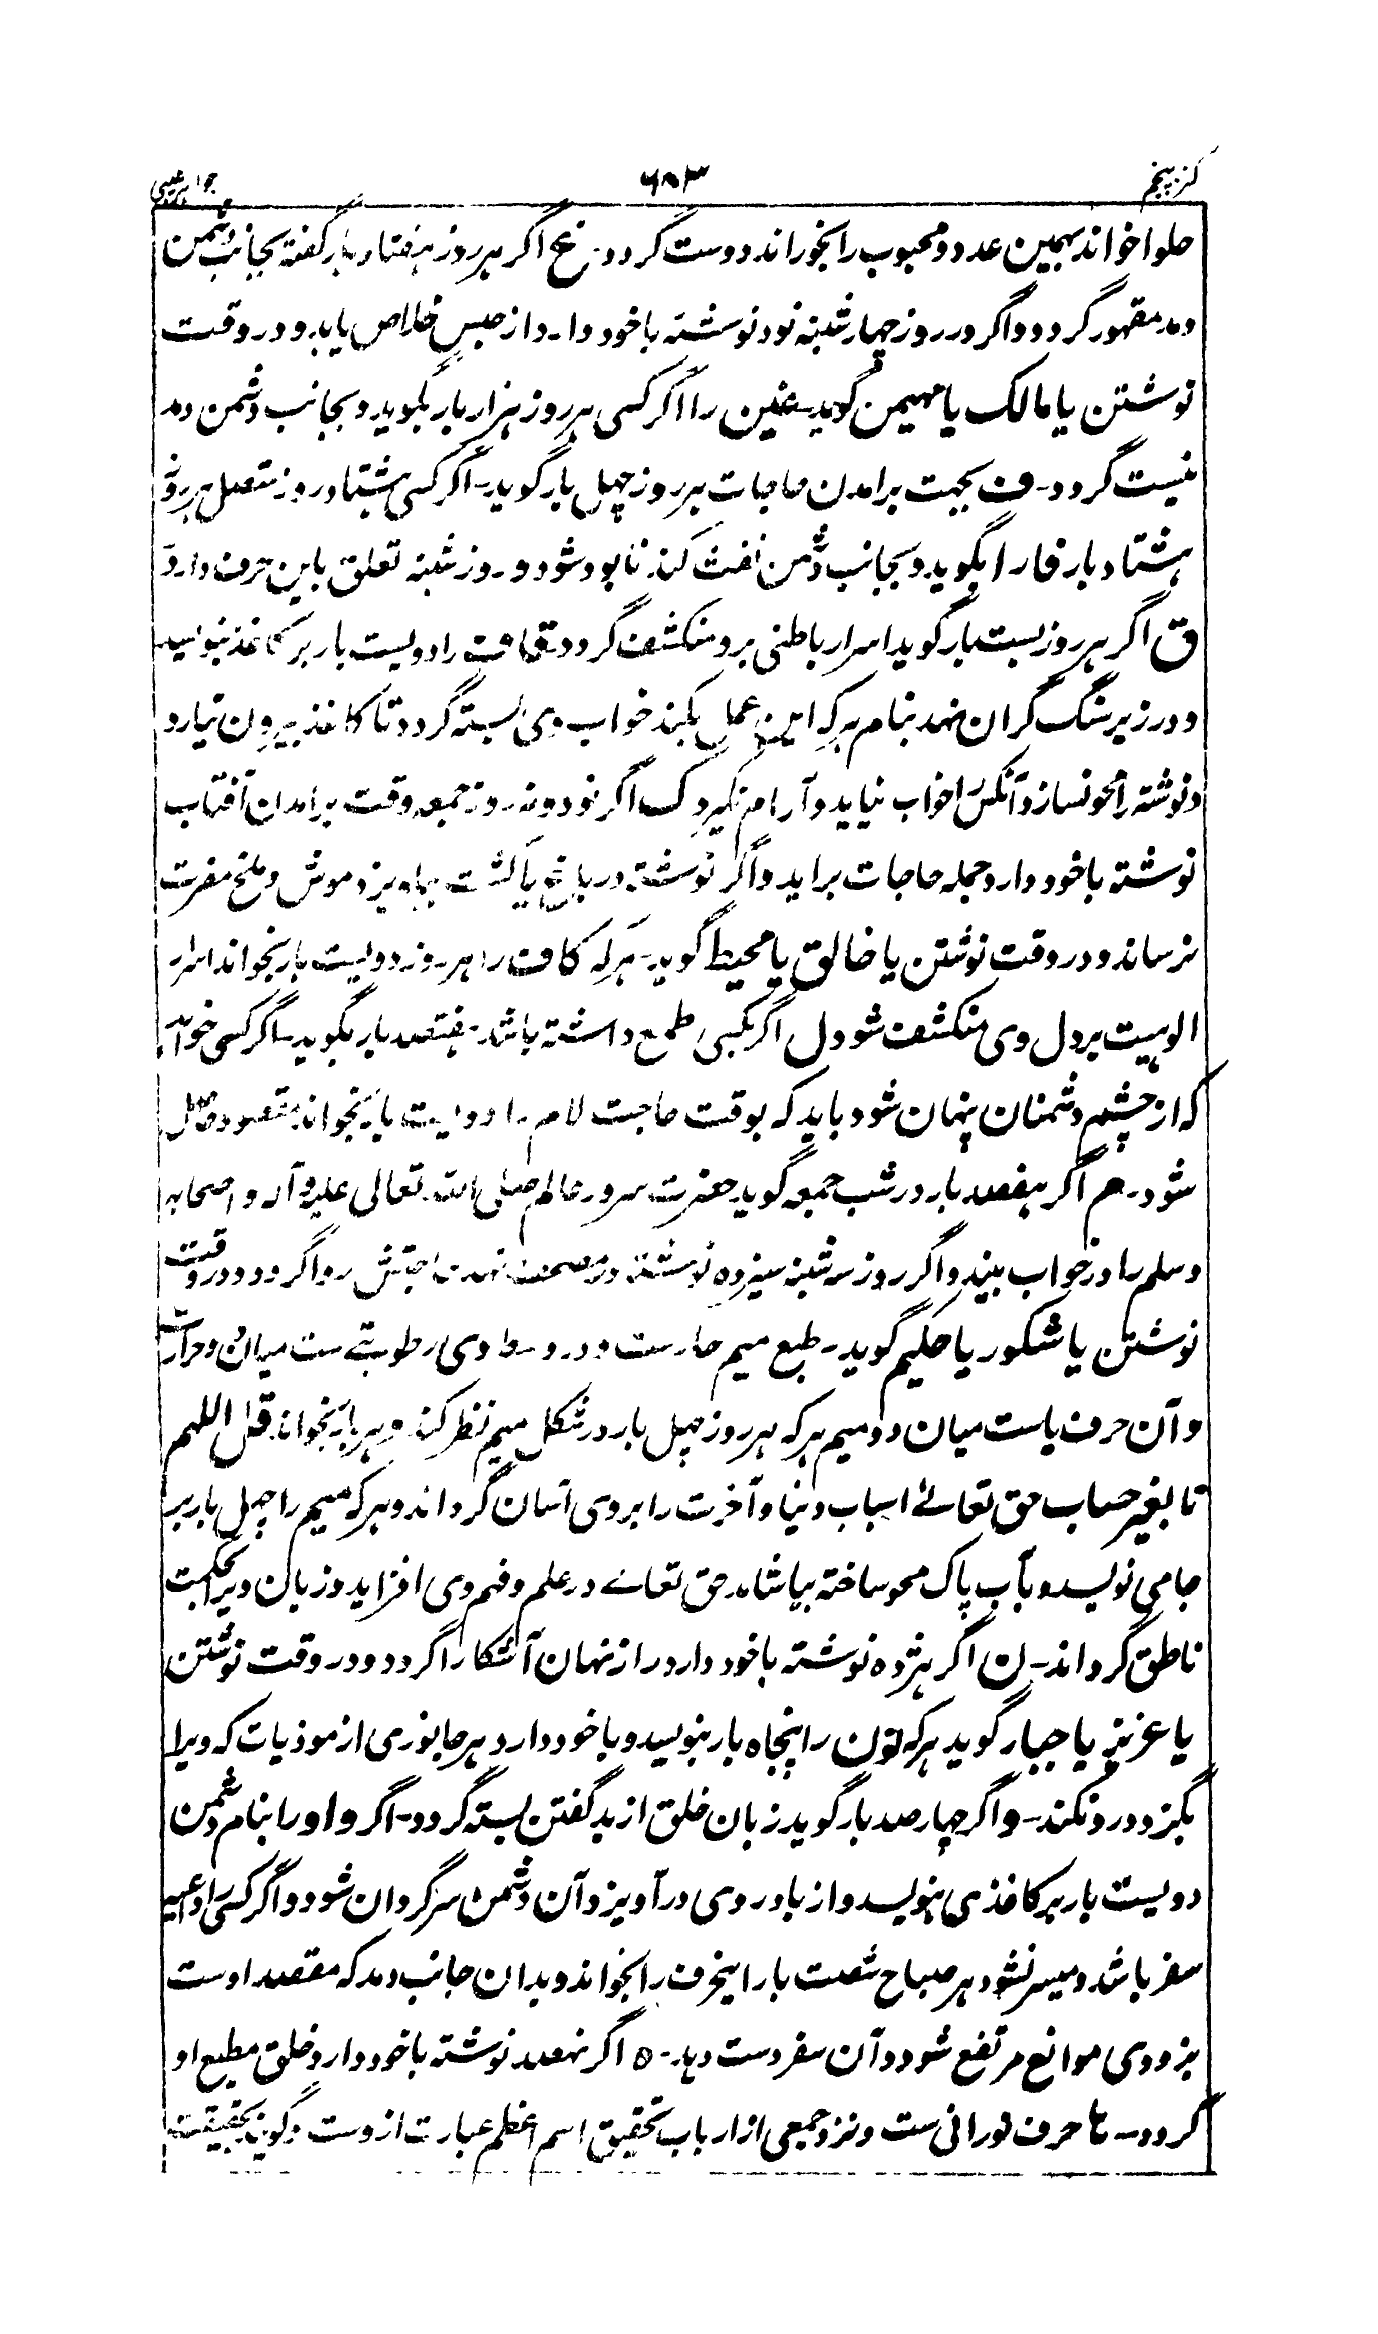 کنز پنجم ۶۵۳ جواہر غیبی
حلوا خواند بہمین عدد و محبوب را بخوراند دوست گردد۔ غ اگر ہر روز ہفتاد بار گفتہ بجانب دشمن
دمد مقہور گردد و اگر در روز چہار شنبہ نود نوشتہ با خود دارد از حبس خلاص یابد و در وقت
نوشتن یا مالک یا مہیمن گوید۔ غین را اگر کسی ہر روز ہزار بار بگوید و بجانب دشمن دمد
نیست گردد۔ ف بجہت برآمدن حاجات ہر روز چہل بار گوید۔ اگر کسی ہشتاد روز متصل ہر روز
ہشتاد بار فا را بگوید و بجانب دشمن نفث کند نابود شود و روز شنبہ تعلق باین حرف دارد
ق اگر ہر روز بست بار گوید اسرار باطنی برو منکشف گردد۔ قاف را دویست بار بر کاغذ بنویسد
و در زیر سنگ گران نہد بنام ہر کہ این عمل بکند خواب وی بستہ گردد تا کاغذ بیرون نیارد
و نوشتہ را محو نسازد آنکس را خواب نیاید و آرام نگیرد ک اگر نود و نہ روز جمعہ وقت برآمدن آفتاب
نوشتہ با خود دارد جملہ حاجات برآید و اگر نوشتہ در باغ یا کشت بیاویزد موش و ملخ مضرت
نرساند و در وقت نوشتن یا خالق یا محیط گوید۔ ہر کہ کاف را ہر روز دویست بار بخواند اسرار
الوہیت بر دل وی منکشف شود ل اگر بکسی طمع داشتہ باشد۔ ہفتصد بار بگوید۔ اگر کسی خواہد
کہ از چشم دشمنان پنہان شود باید کہ بوقت حاجت لام را دویست بار بخواند مقصود حاصل
شود۔ م اگر ہفصد بار در شب جمعہ گوید حضرت سرور عالم صلی اللہ تعالی علیہ و آلہ و اصحابہ
وسلم را در خواب بیند و اگر روز سہ شنبہ سیزدہ نوشتہ در مصحف نہد حاجتش روا گردد و در وقت
نوشتن یا شکور یا حلیم گوید۔ طبع میم حارست و در وسط وی رطوبتے ست میان دو حرارت
و آن حرف یاست میان دو میم ہر کہ ہر روز چہل بار در شکل میم نظر کند و ہر بار بخواند قل اللہم
تا بغیر حساب حق تعالے اسباب دنیا و آخرت را بروی آسان گرداند و ہر کہ میم را چہل بار بر
جامی نویسد و بآب پاک محو ساختہ بیاشامد حق تعالے در علم و فہم وی افزاید و زبان ویرا بحکمت
ناطق گرداند۔ ن اگر ہژدہ نوشتہ با خود دارد راز نہان آشکارا گردد و در وقت نوشتن
یا عزیز یا جبار گوید ہر کہ نون را پنجاہ بار بنویسد و با خود دارد ہر جانوری از موذیات کہ ویرا
بگزد درد نکند۔ و اگر چہار صد بار گوید زبان خلق از بد گفتن بستہ گردد۔ اگر واو را بنام دشمن
دویست بار بر کاغذی بنویسد و از باد روی در آویزد آن دشمن سرگردان شود و اگر کسی را داعیہ
سفر باشد و میسر نشود ہر صباح شصت بار اینحرف را بخواند و بدان جانب دمد کہ مقصد اوست
بزودی موانع مرتفع شود و آن سفر دست دہد۔ ہ اگر نہصد نوشتہ با خود دارد خلق مطیع او
گردد۔ ہا حرف نورانی ست و نزد جمعی از ارباب تحقیق اسم اعظم عبارت ازوست و گویند بحقیقت